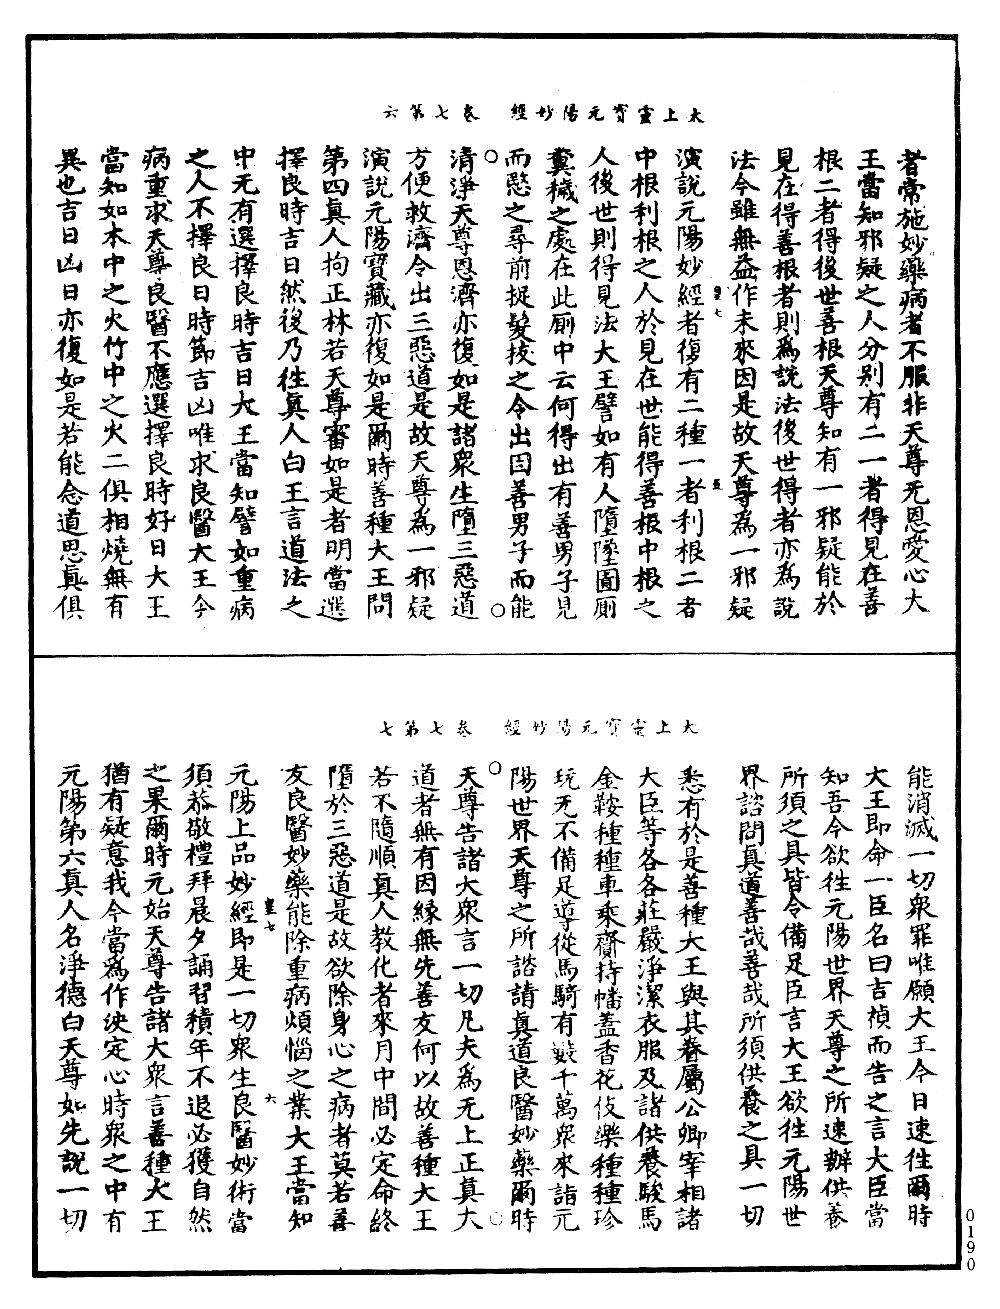 太上靈寶元陽妙經　卷七第六
者常施妙藥病者不服非天尊无恩愛心大
王當知邪疑之人分别有二一者得見在善
根二者得後世善根天尊知有一邪疑能於
見在得善根者則為說法後世得者亦為說
法今雖無益作未來因是故天尊為一邪疑
演說元陽妙經者復有二種一者利根二者
中根利根之人於見在世能得善根中根之
人後世則得見法大王譬如有人墮墜圊厠
糞穢之處在此厠中云何得出有善男子見
而愍之尋前捉髮拔之令出因善男子而能
清淨天尊恩濟亦復如是諸衆生墮三惡道
方便救濟令出三惡道是故天尊為一邪疑
演說元陽寶藏亦復如是爾時善種大王問
第四真人拘正林若天尊審如是者明當選
擇良時吉日然後乃往真人白王言道法之
中无有選擇良時吉日大王當知譬如重病
之人不擇良日時節吉凶唯求良醫大王今
病重求天尊良醫不應選擇良時好日大王
當知如木中之火竹中之火二俱相燒無有
異也吉日凶日亦復如是若能念道思真俱
太上靈寶元陽妙經　卷七第七
能消滅一切衆罪唯願大王今日速往爾時
大王即命一臣名曰吉禎而告之言大臣當
知吾今欲往元陽世界天尊之所速辦供養
所須之具皆令備足臣言大王欲往元陽世
界諮問真道善哉善哉所須供養之具一切
悉有於是善種大王與其眷屬公卿宰相諸
大臣等各各莊嚴淨潔衣服及諸供養駿馬
金鞍種種車乘齎持幡蓋香花伎樂種種珍
玩无不備足導從馬騎有數千萬衆來詣元
陽世界天尊之所諮請真道良醫妙藥爾時
天尊告諸大衆言一切凡夫為无上正真大
道者無有因緣無先善友何以故善種大王
若不隨順真人教化者來月中間必定命終
墮於三惡道是故欲除身心之病者莫若善
友良醫妙藥能除重病煩惱之業大王當知
元陽上品妙經即是一切衆生良醫妙術當
須恭敬禮拜晨夕誦習積年不退必獲自然
之果爾時元始天尊告諸大衆言善種大王
猶有疑意我今當為作決定心時衆之中有
元陽第六真人名淨德白天尊如先說一切
0190